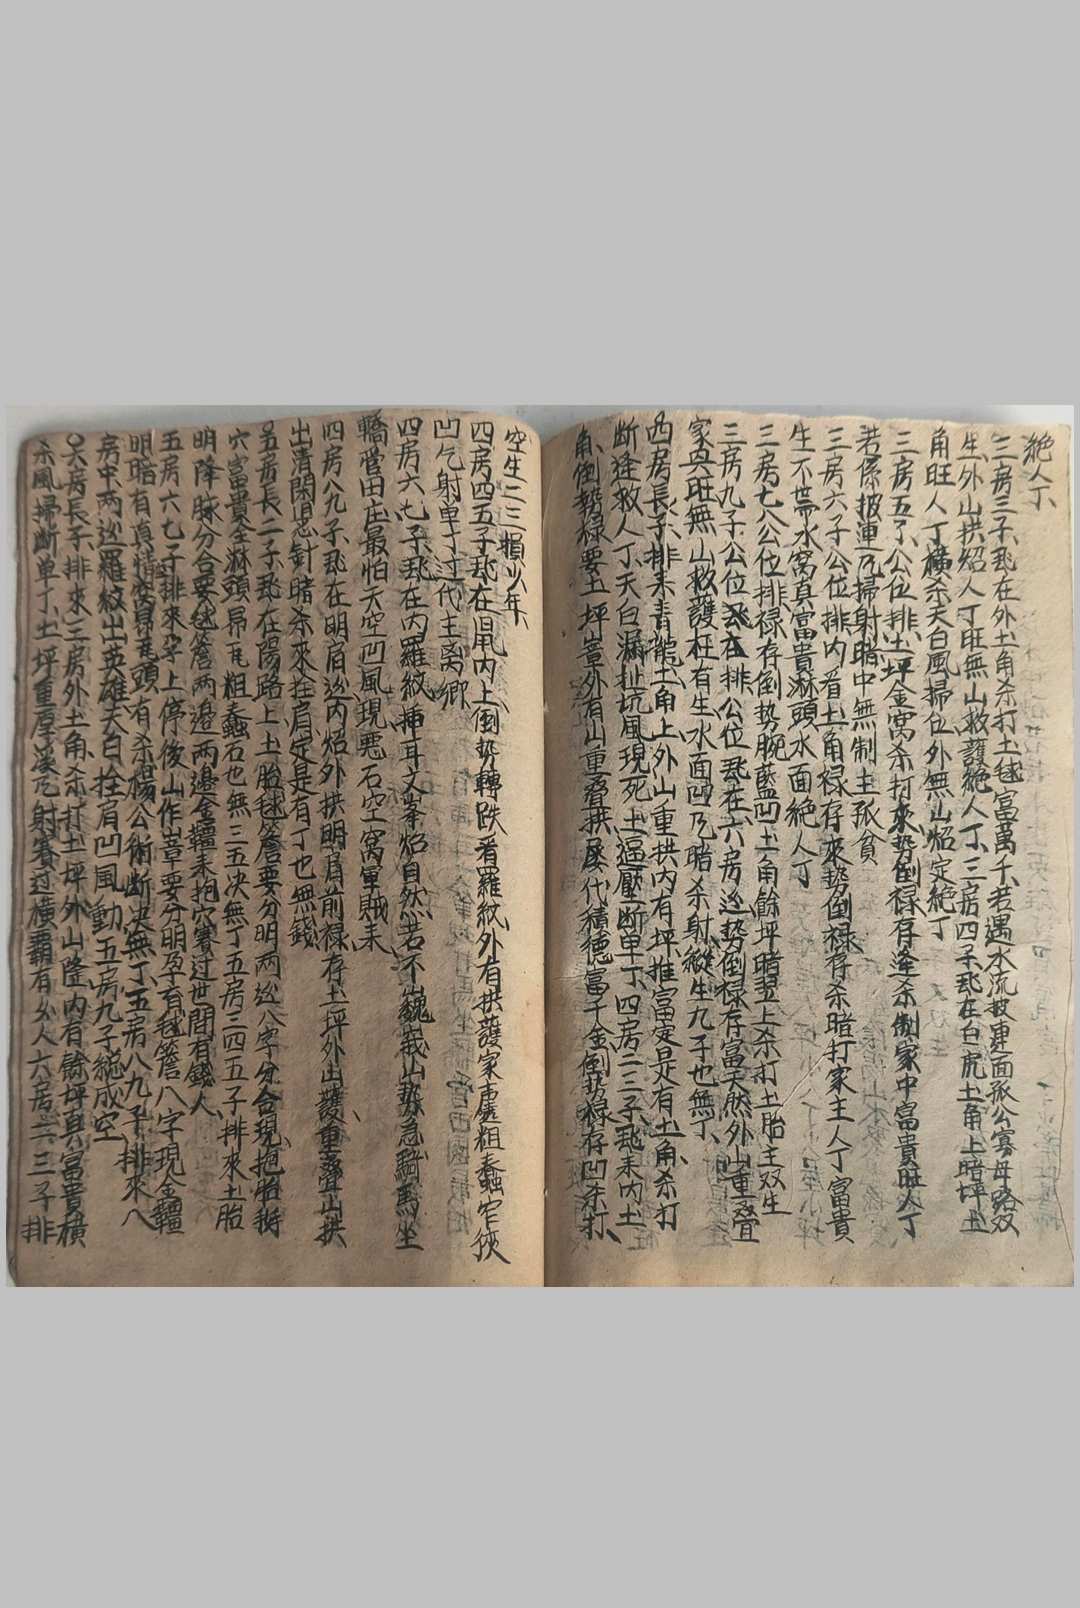 絶人丁
三房三子飛在外土角杀打土毬富萬千若遇水流披連面孤公寡母路双
生外山拱焰人丁旺無山救護絶人丁三房四子飛在白虎土角上暗坪土
角旺人丁橫杀天白風掃位外無山焰定絶丁
三房五子公位排土坪金窩杀打來勢倒禄存逢杀制家中富貴旺人丁
若係披連凢掃射暗中無制主孤貧
三房六子公位排內看土角禄存來勢倒禄存杀暗打家主人丁富貴
生不带水窩真富貴淋頭水面絶人丁
三房七公公位排禄存倒势腕藍凹土角餘坪暗翌上杀打土胎主双生
三房九子公位飛在排公位飛在六房边势倒禄存富天然外山重叠
家真旺無山救護枉有生水面凹凢暗杀射縱生九子也無丁
四房長子排來青龍土角上外山重拱內有坪推富定是有土角杀打
断逢救人丁天白漏扯坑風現死土逼壓断单丁四房二三子飛来內土
角倒势禄要土坪峯外有山重叠拱屡代積德富千金倒势禄存凹杀打
空生二三損少年
四房四五子飛在眉內上倒势轉跌看羅紋外有拱護家處粗蠢窄狹
凹凢射单丁过代主离鄉
四房六七子飛在內羅紋揷耳文峯焰自然若不巍峩山势急騎馬坐
轎管田庄最怕天空凹風現悪石空窩軍賊来
四房八九子飛在明肩边內焰外拱明肩前禄存土坪外山護重叠山拱
出清閑忌針暗杀來在肩定是有丁也無錢
五房長二子飛在陽路上土胎毬簷要分明两边八字分合現抱胎衡
穴富貴全淋頭昂瓦粗蠢石也無三五决無丁五房三四五子排來土胎
明降脉分合要毬簷两邊两邊金疆来抱穴賽过世間有錢人
五房六七子排來字上停後山作峯要分明孕育毬簷八字現金疆
明暗有真情窩昂瓦頭有杀楊公術断决無丁五房八九子排來八
房中两边羅紋出英雄天白拴肩凹風動五房九子縂成空
六房長子排來三房外土角杀打土坪外山隆內有餘坪真富貴橫
杀風掃断单丁土坪重厚溪凢射賽过橫霸有幺人六房二三子排